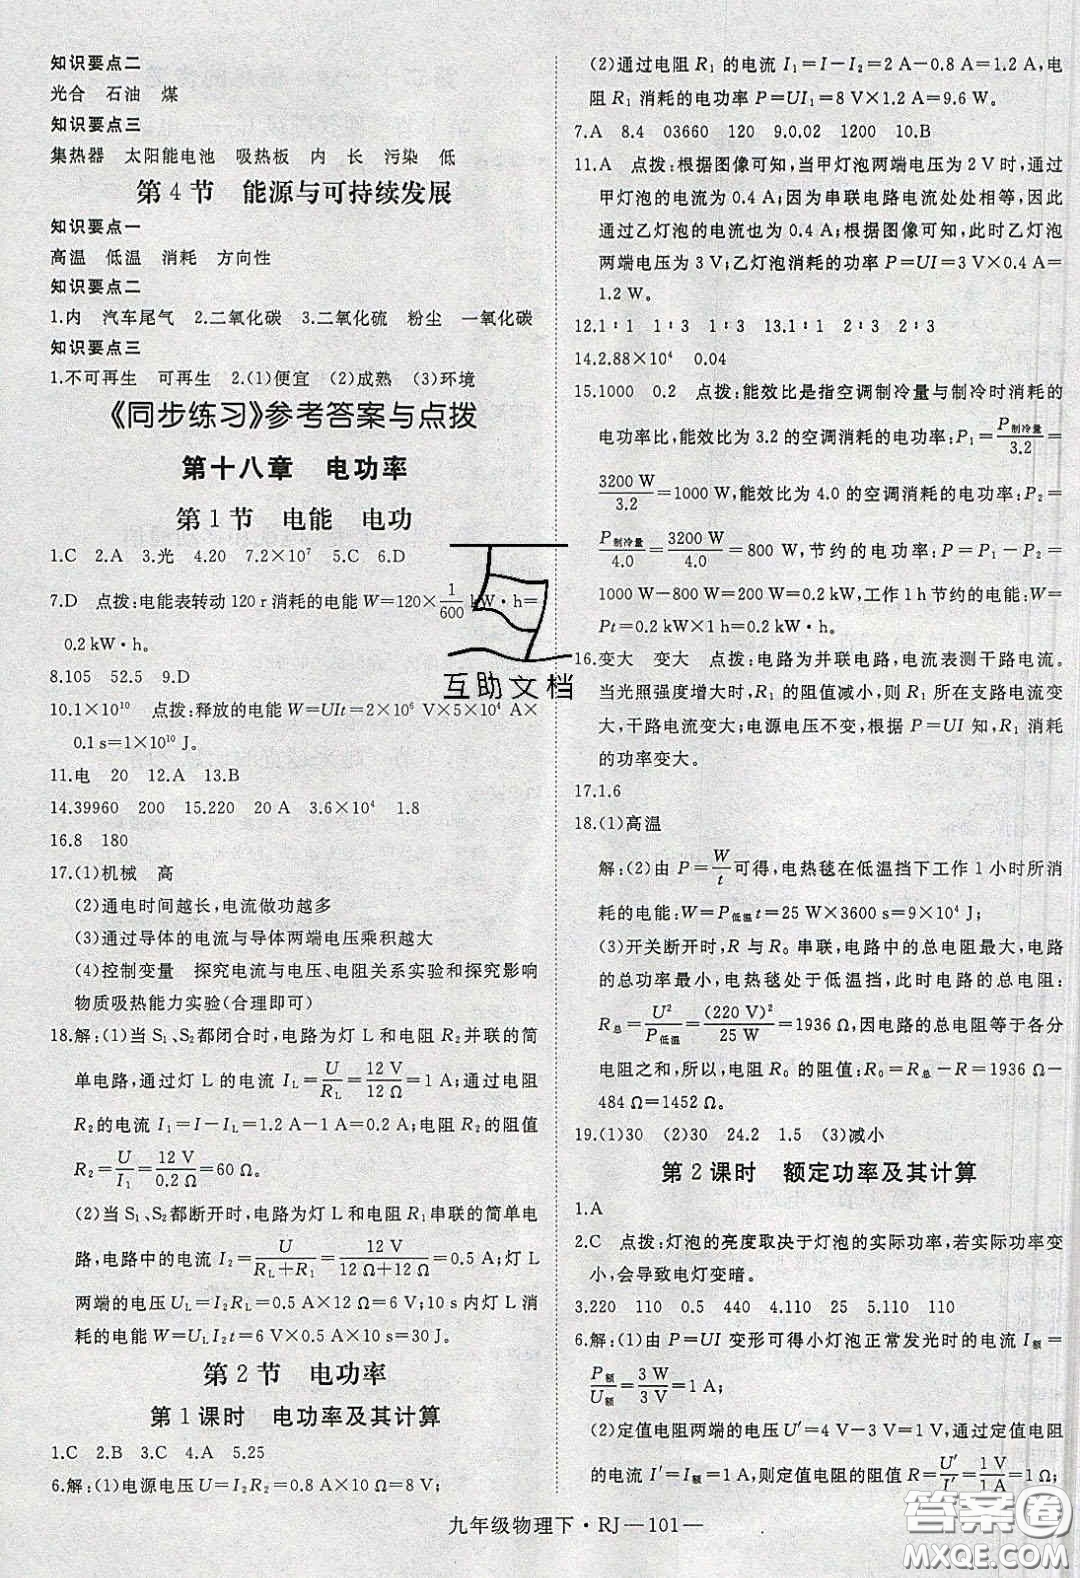 知识要点二
光合　石油　煤
知识要点三
集热器　太阳能电池　吸热板　内　长　污染　低
第4节　能源与可持续发展
知识要点一
高温　低温　消耗　方向性
知识要点二
1.内　汽车尾气　2.二氧化碳　3.二氧化硫　粉尘　一氧化碳
知识要点三
1.不可再生　可再生　2.(1)便宜　(2)成熟　(3)环境
《同步练习》参考答案与点拨
第十八章　电功率
第1节　电能　电功
1.C　2.A　3.光　4.20　7.2×10⁷　5.C　6.D
7.D　点拨:电能表转动120 r消耗的电能W=120×1/600 kW·h=
0.2 kW·h。
8.105　52.5　9.D
10.1×10¹⁰　点拨:释放的电能W=UIt=2×10⁶ V×5×10⁴ A×
0.1 s=1×10¹⁰ J。
11.电　20　12.A　13.B
14.39960　200　15.220　20 A　3.6×10⁴　1.8
16.8　180
17.(1)机械　高
(2)通电时间越长,电流做功越多
(3)通过导体的电流与导体两端电压乘积越大
(4)控制变量　探究电流与电压、电阻关系实验和探究影响
物质吸热能力实验(合理即可)
18.解:(1)当S₁、S₂都闭合时,电路为灯L和电阻R₂并联的简
单电路,通过灯L的电流I_L=U/R_L=12 V/12 Ω=1 A;通过电阻
R₂的电流I₁=I-I_L=1.2 A-1 A=0.2 A;电阻R₂的阻值
R₂=U/I₁=12 V/0.2 Ω=60 Ω。
(2)当S₁、S₂都断开时,电路为灯L和电阻R₁串联的简单电
路,电路中的电流I₂=U/(R_L+R₁)=12 V/(12 Ω+12 Ω)=0.5 A;灯L
两端的电压U_L=I₂R_L=0.5 A×12 Ω=6 V;10 s内灯L消
耗的电能W=U_L I₂t=6 V×0.5 A×10 s=30 J。
第2节　电功率
第1课时　电功率及其计算
1.C　2.B　3.C　4.A　5.25
6.解:(1)电源电压U=I₂R₂=0.8 A×10 Ω=8 V;
(2)通过电阻R₁的电流I₁=I-I₂=2 A-0.8 A=1.2 A,电
阻R₁消耗的电功率P=UI₁=8 V×1.2 A=9.6 W。
7.A　8.4　03660　120　9.0.02　1200　10.B
11.A　点拨:根据图像可知,当甲灯泡两端电压为2 V时,通过
甲灯泡的电流为0.4 A;因为串联电路电流处处相等,所以
通过乙灯泡的电流也为0.4 A;根据图像可知,此时乙灯泡
两端电压为3 V;乙灯泡消耗的功率P=UI=3 V×0.4 A=
1.2 W。
12.1∶1　1∶3　1∶3　13.1∶1　2∶3　2∶3
14.2.88×10⁴　0.04
15.1000　0.2　点拨:能效比是指空调制冷量与制冷时消耗的
电功率比,能效比为3.2的空调消耗的电功率:P₁=P制冷量/3.2=
3200 W/3.2=1000 W,能效比为4.0的空调消耗的电功率:P₂=
P制冷量/4.0=3200 W/4.0=800 W,节约的电功率:P=P₁-P₂=
1000 W-800 W=200 W=0.2 kW,工作1 h节约的电能:W=
Pt=0.2 kW×1 h=0.2 kW·h。
16.变大　变大　点拨:电路为并联电路,电流表测干路电流。
当光照强度增大时,R₁的阻值减小,则R₁所在支路电流变
大,干路电流变大;电源电压不变,根据P=UI知,R₁消耗
的功率变大。
17.1.6
18.(1)高温
解:(2)由P=W/t可得,电热毯在低温挡下工作1小时所消
耗的电能:W=P低温t=25 W×3600 s=9×10⁴ J;
(3)开关断开时,R与R₀串联,电路中的总电阻最大,电路
的总功率最小,电热毯处于低温挡,此时电路的总电阻:
R总=U²/P低温=(220 V)²/25 W=1936 Ω,因电路的总电阻等于各分
电阻之和,所以,电阻R₀的阻值:R₀=R总-R=1936 Ω-
484 Ω=1452 Ω。
19.(1)30　(2)30　24.2　1.5　(3)减小
第2课时　额定功率及其计算
1.A
2.C　点拨:灯泡的亮度取决于灯泡的实际功率,若实际功率变
小,会导致电灯变暗。
3.220　110　0.5　440　4.110　25　5.110　110
6.解:(1)由P=UI变形可得小灯泡正常发光时的电流I额=
P额/U额=3 W/3 V=1 A;
(2)定值电阻两端的电压U′=4 V-3 V=1 V;通过定值电
阻的电流I′=I额=1 A,则定值电阻的阻值R=U′/I′=1 V/1 A=1 Ω;
九年级物理下·RJ—101—
互助文档
答案圈
MXQE.COM